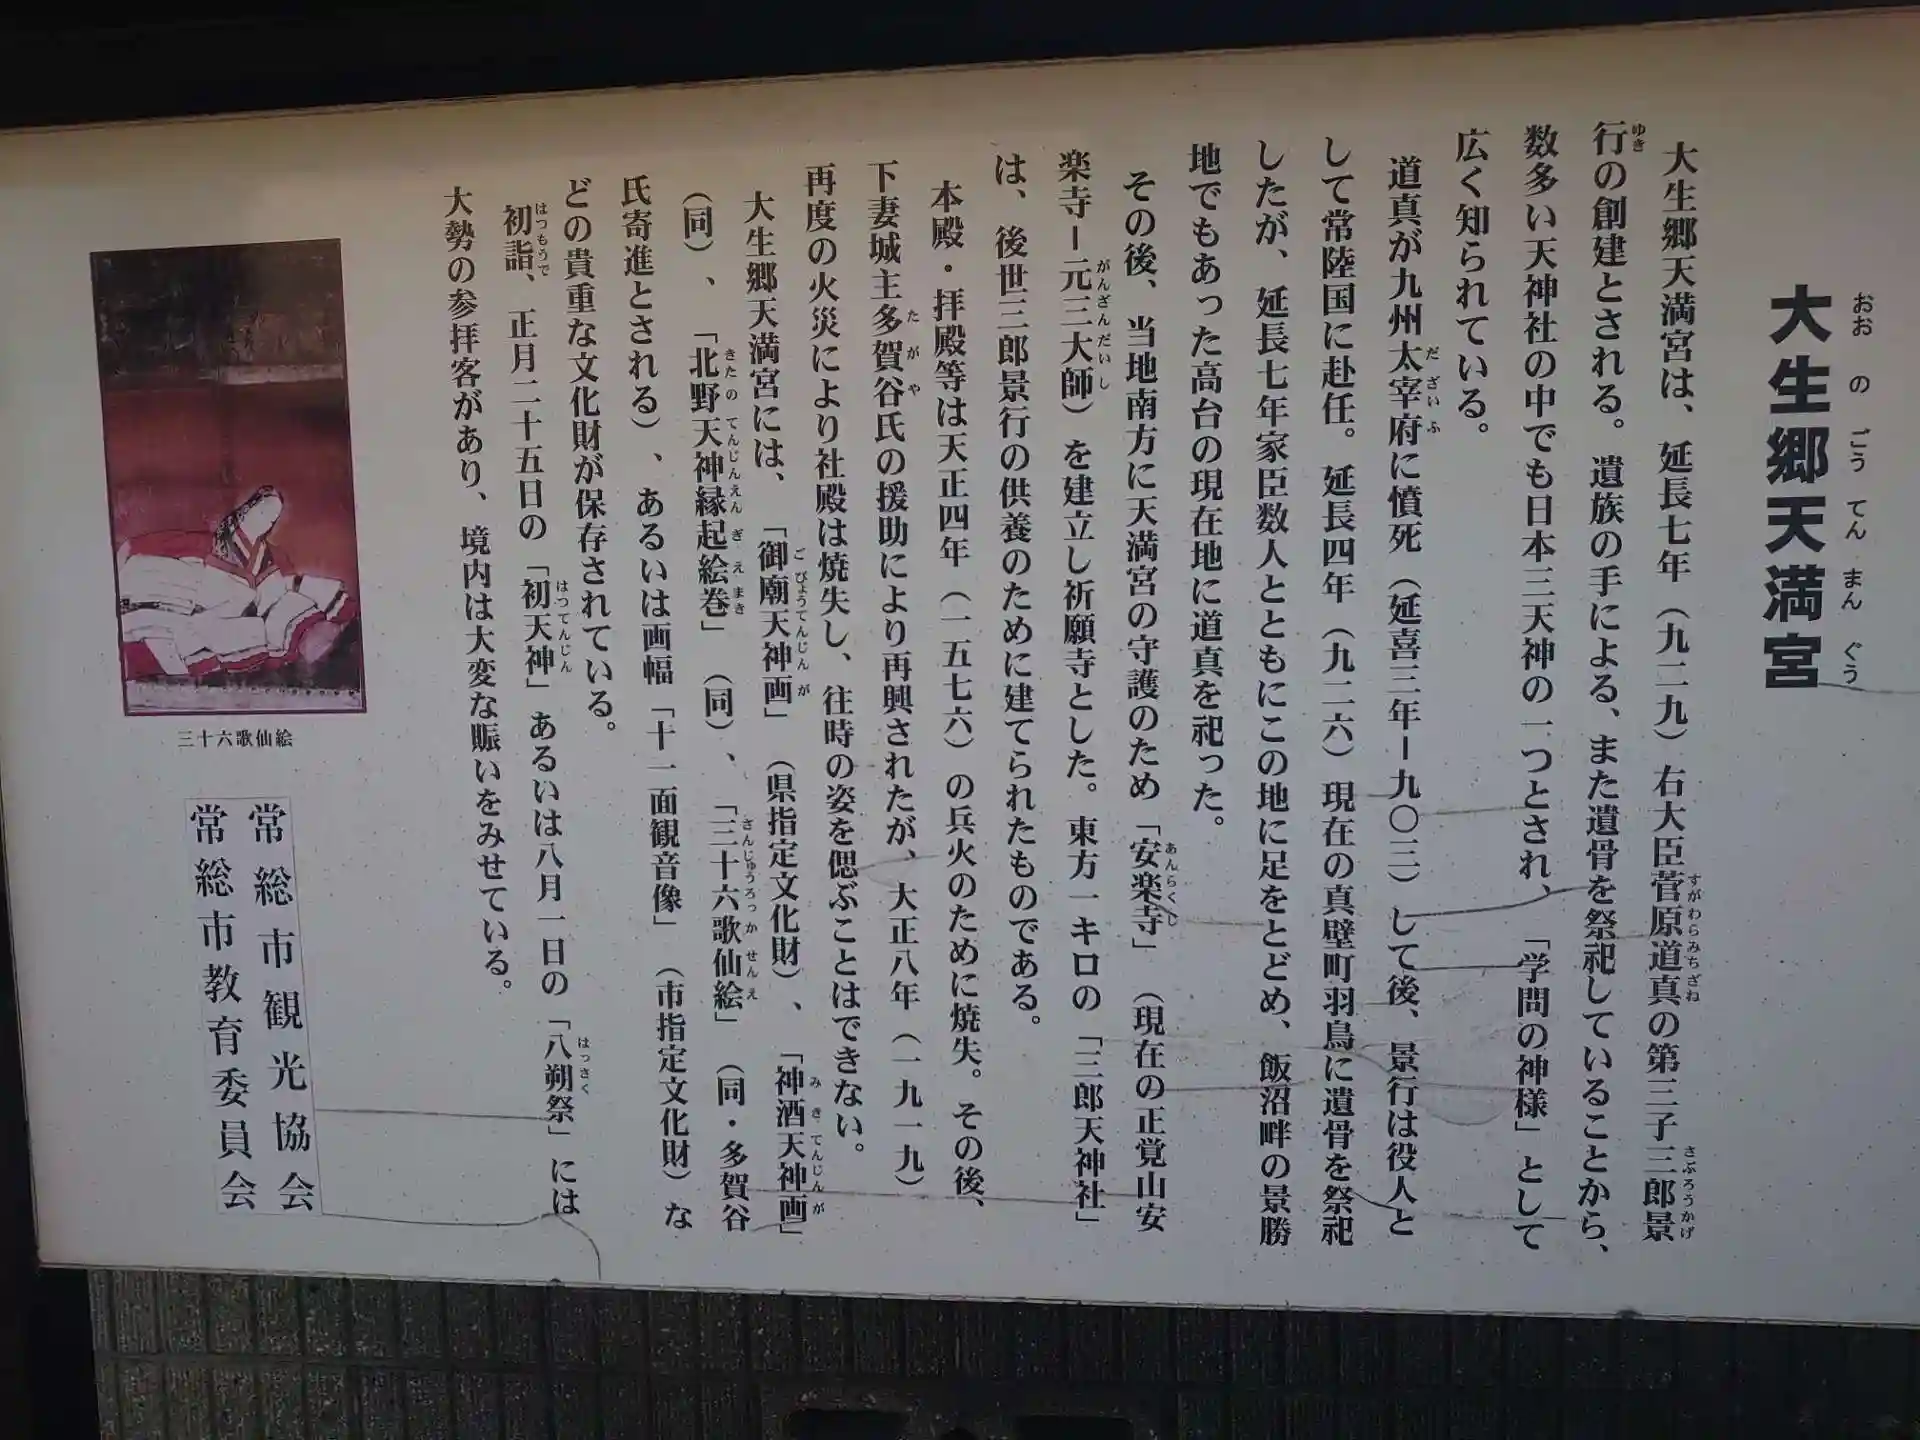 大生郷天満宮
おおのごうてんまんぐう
大生郷天満宮は、延長七年（九二九）右大臣菅原道真の第三子三郎景
すがわらみちざね
さぶろうかげ
行の創建とされる。遺族の手による、また遺骨を祭祀していることから、
ゆき
数多い天神社の中でも日本三天神の一つとされ、「学問の神様」として
広く知られている。
道真が九州太宰府に憤死（延喜三年ー九〇三）して後、景行は役人と
だざいふ
して常陸国に赴任。延長四年（九二六）現在の真壁町羽鳥に遺骨を祭祀
したが、延長七年家臣数人とともにこの地に足をとどめ、飯沼畔の景勝
地でもあった高台の現在地に道真を祀った。
その後、当地南方に天満宮の守護のため「安楽寺」（現在の正覚山安
あんらくじ
楽寺ー元三大師）を建立し祈願寺とした。東方一キロの「三郎天神社」
がんざんだいし
は、後世三郎景行の供養のために建てられたものである。
本殿・拝殿等は天正四年（一五七六）の兵火のために焼失。その後、
下妻城主多賀谷氏の援助により再興されたが、大正八年（一九一九）
たがや
再度の火災により社殿は焼失し、往時の姿を偲ぶことはできない。
大生郷天満宮には、「御廟天神画」（県指定文化財）、「神酒天神画」
ごびょうてんじんが
みきてんじんが
（同）、「北野天神縁起絵巻」（同）、「三十六歌仙絵」（同・多賀谷
きたのてんじんえんぎえまき
さんじゅうろっかせんえ
氏寄進とされる）、あるいは画幅「十一面観音像」（市指定文化財）な
どの貴重な文化財が保存されている。
初詣、正月二十五日の「初天神」あるいは八月一日の「八朔祭」には
はつもうで
はつてんじん
はっさく
大勢の参拝客があり、境内は大変な賑いをみせている。
三十六歌仙絵
常総市観光協会
常総市教育委員会